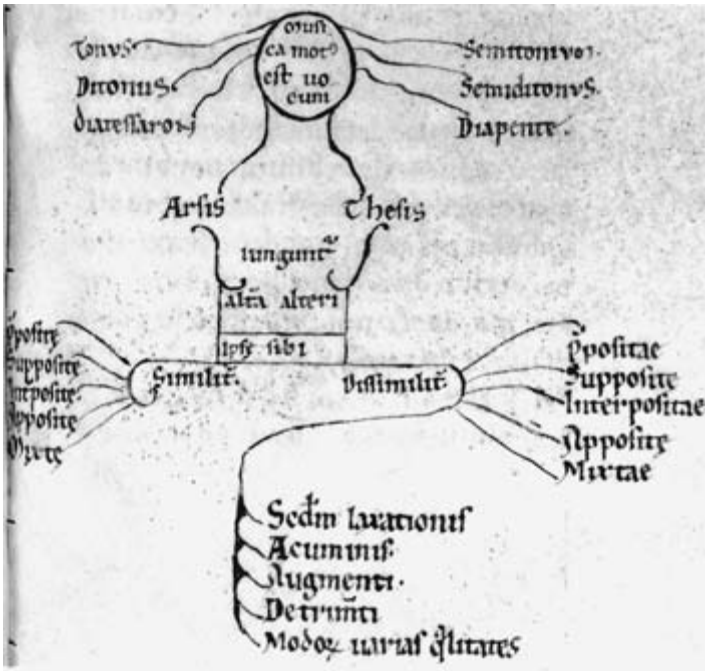 musi
ca motꝰ
est uo
cum
Tonus
Ditonus
diatessaron
Semitonium
Semiditonus
Diapente
Arsis
Thesis
iungunt᷑
alt̄a alteri
Ipsę sibi
Similit᷑
Dissimilit᷑
ppositę
Suppositę
Int̄positę
Appositę
Mixtę
Ppositae
Suppositę
Interpositae
Appositę
Mixtae
Sed̄m laxationis
Acuminis
Augmenti
Detrim̄ti
Modoꝝ uarias q̄litates